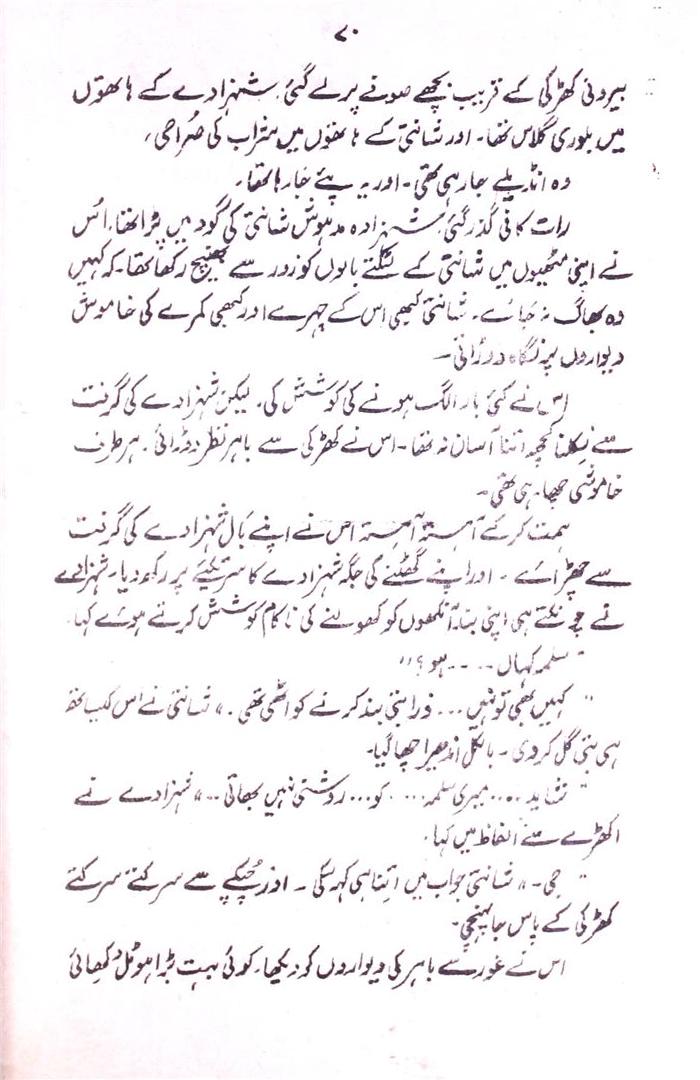 ۷۰
بیرونی کھڑکی کے قریب بچھے صوفے پر لے گئی۔ شہزادے کے ہاتھوں
میں بلوری گلاس تھا۔ اور شانتی کے ہاتھوں میں شراب کی صراحی،
وہ انڈیلے جا رہی تھی۔ اور یہ پئے جا رہا تھا۔
رات کافی گذر گئی۔ شہزادہ مدہوش شانتی کی گود میں پڑا تھا۔ اُس
نے اپنی مٹھیوں میں شانتی کے لٹکتے بالوں کو زور سے بھینچ رکھا تھا۔ کہ کہیں
وہ بھاگ نہ جائے۔ شانتی کبھی اس کے چہرے اور کبھی کمرے کی خاموش
دیواروں پر نگاہ دوڑاتی۔
اس نے کئی بار الگ ہونے کی کوشش کی۔ لیکن شہزادے کی گرفت
سے نکلنا کچھ اتنا آسان نہ تھا۔ اس نے کھڑکی سے باہر نظر دوڑائی۔ ہر طرف
خاموشی چھا رہی تھی۔
ہمت کر کے آہستہ آہستہ اس نے اپنے بال شہزادے کی گرفت
سے چھڑائے۔ اور اپنے گھٹنے کی جگہ شہزادے کا سر تکیے پر رکھ دیا۔ شہزادے
نے چونکتے ہی اپنی بند آنکھوں کو کھولنے کی ناکام کوشش کرتے ہوئے کہا۔
"سلمہ کہاں ۔۔۔۔ ہو؟"
"کہیں بھی تو نہیں ... ذرا بتی بند کرنے کو اٹھی تھی۔" شانتی نے اس کے ساتھ
ہی بتی گل کر دی۔ بالکل اندھیرا چھا گیا۔
"شاید .... میری سلمہ .... کو ... روشنی نہیں بھاتی ۔۔" شہزادے نے
اکھڑے سے الفاظ میں کہا۔
"جی۔" شانتی جواب میں اتنا ہی کہہ سکی۔ اور چپکے سے سرکتے سرکتے
کھڑکی کے پاس جا پہنچی۔
اس نے غور سے باہر کی دیواروں کو دیکھا۔ کوئی بہت بڑا ہوٹل دکھائی